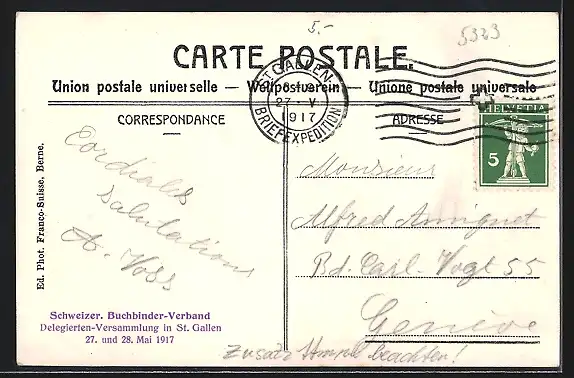 5.-
5323
CARTE POSTALE.
Union postale universelle — Weltpostverein — Unione postale universale
ST. GALLEN
27. V
1917
BRIEFEXPEDITION
HELVETIA
5
CORRESPONDANCE
ADRESSE
Cordiales
salutations
A. Voss
Monsieur
Alfred Amiguet
Bd. Carl-Vogt 55
Genève
Ed. Phot. Franco-Suisse, Berne.
Schweizer. Buchbinder-Verband
Delegierten-Versammlung in St. Gallen
27. und 28. Mai 1917
Zusatz Stempel beachten!